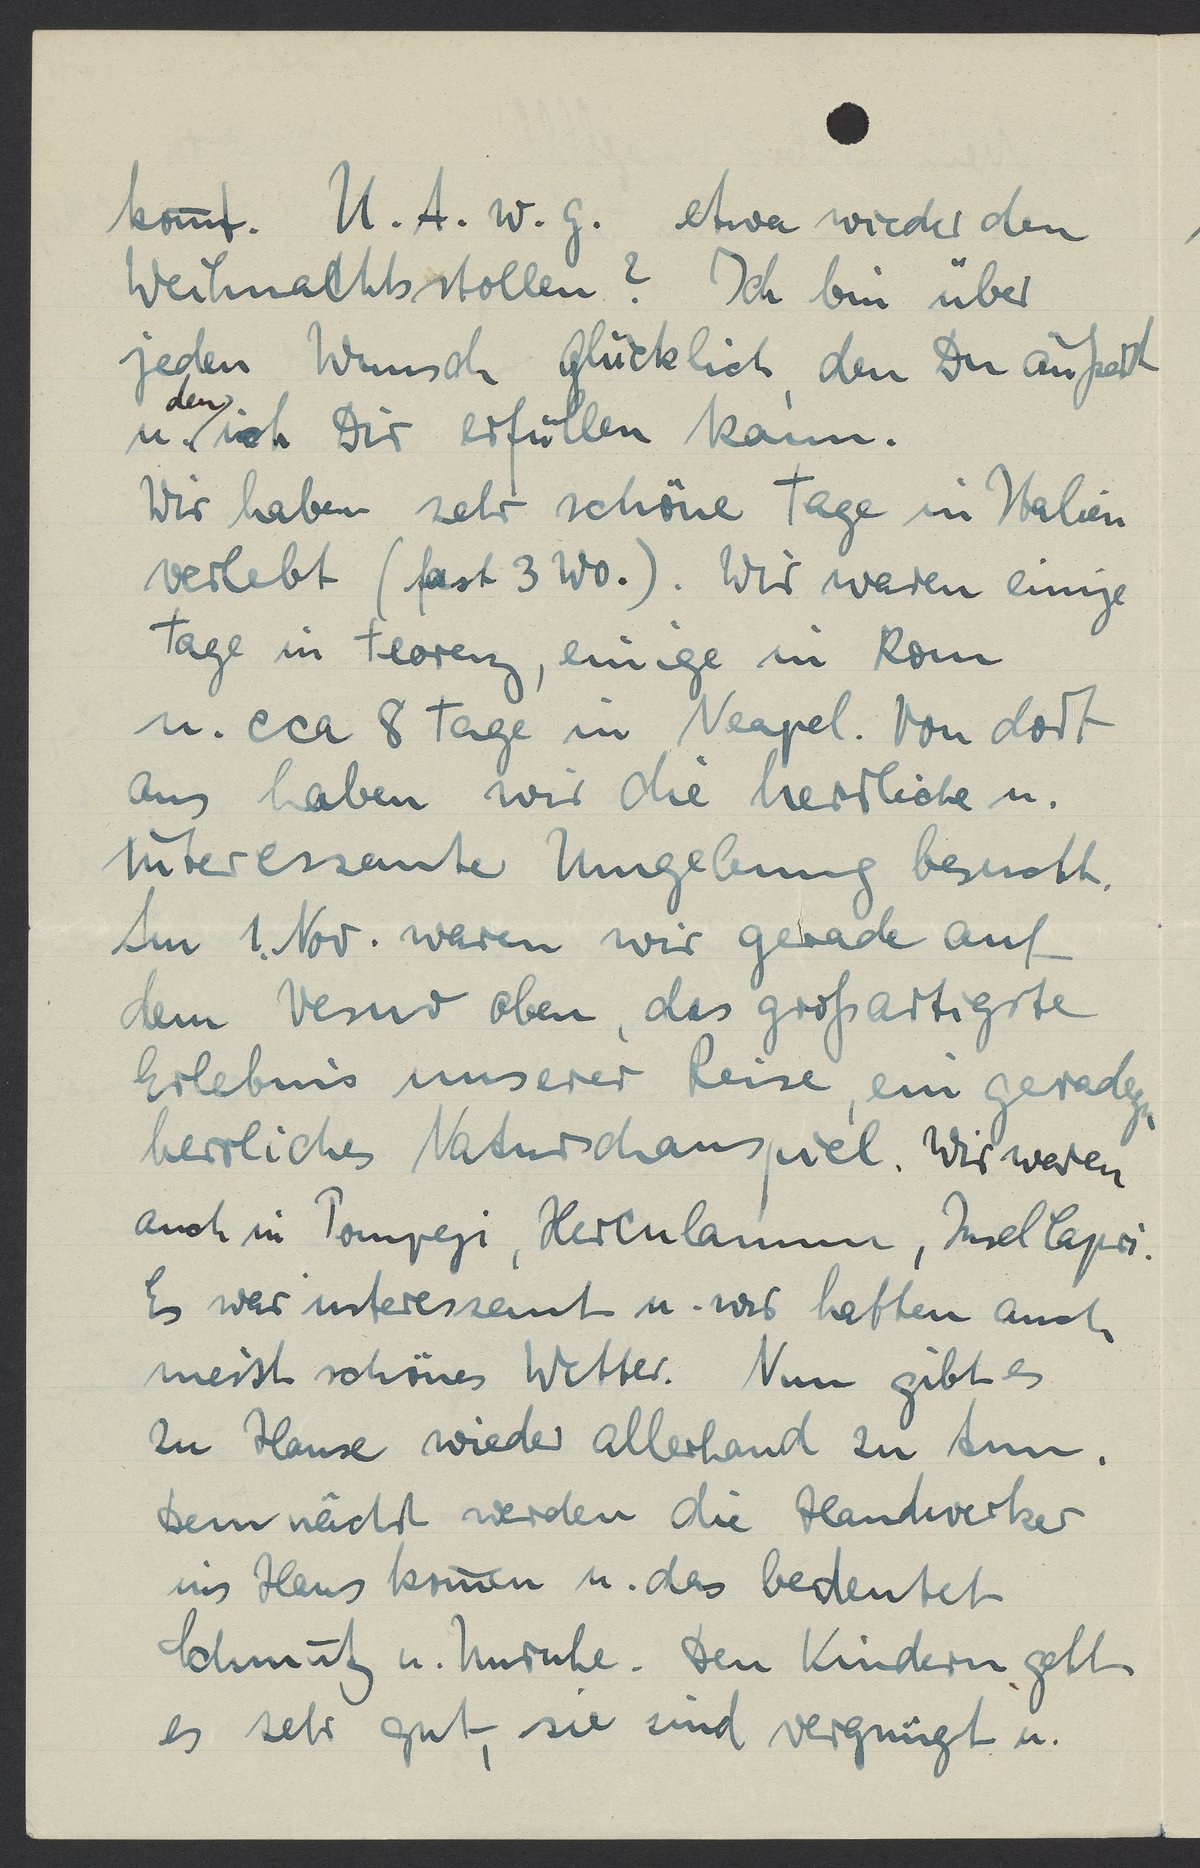 kom̅t. U. A. w. g. etwa wieder den
Weihnachtsstollen? Ich bin über
jeden Wunsch glücklich, den Du äußerst
u. den ich Dir erfüllen kann.
Wir haben sehr schöne Tage in Italien
verlebt (fast 3 Wo.). Wir waren einige
Tage in Florenz, einige in Rom
u. cca 8 Tage in Neapel. Von dort
aus haben wir die herrliche u.
interessante Umgebung besucht.
Am 1. Nov. waren wir gerade auf
dem Vesuv oben, das großartigste
Erlebnis unserer Reise, ein geradezu
herrliches Naturschauspiel. Wir waren
auch in Pompeji, Herculanum, Insel Capri.
Es war interessant u. wir hatten auch
meist schönes Wetter. Nun gibt es
zu Hause wieder allerhand zu tun.
Demnächst werden die Handwerker
ins Haus kom̅en u. das bedeutet
Schmutz u. Unruhe. Den Kindern geht
es sehr gut, sie sind vergnügt u.